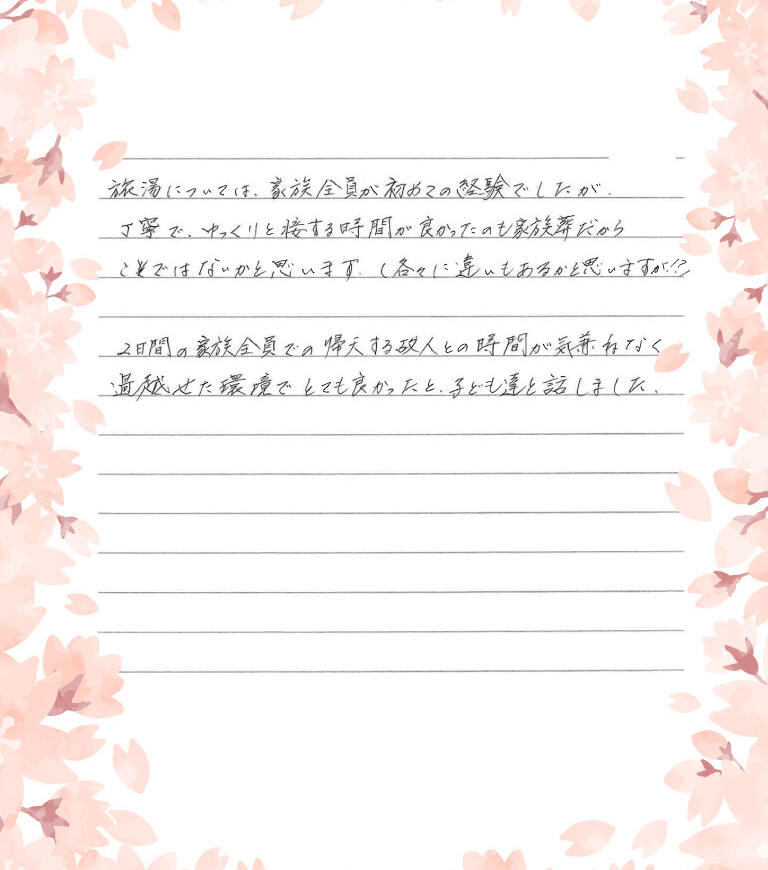 旅湯については、家族全員が初めての経験でしたが、
丁寧で、ゆっくりと接する時間が良かったのも家族葬だから
こそではないかと思います。（各々に違いもあるかと思いますが!?）
2日間の家族全員での帰天する故人との時間が気兼ねなく
過越せた環境でとても良かったと、子ども達と話しました。